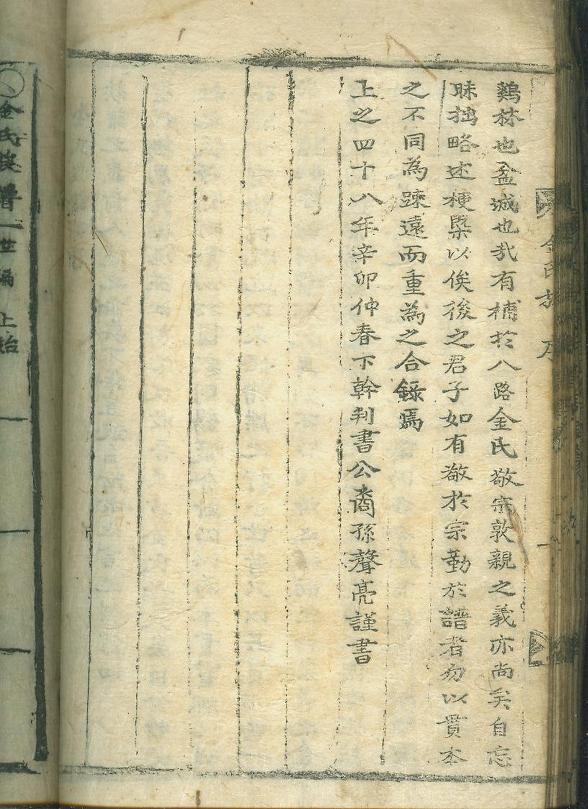 鷄林也盆城也哉有補於八路金氏敬宗敦親之義亦尚矣自忘
昧拙略述梗槩以俟後之君子如有敬於宗勤於譜者勿以貫本
之不同為踈遠而重為之合錄焉
上之四十八年辛卯仲春下幹判書公裔孫聲亮謹書
金氏族譜 世編 上始